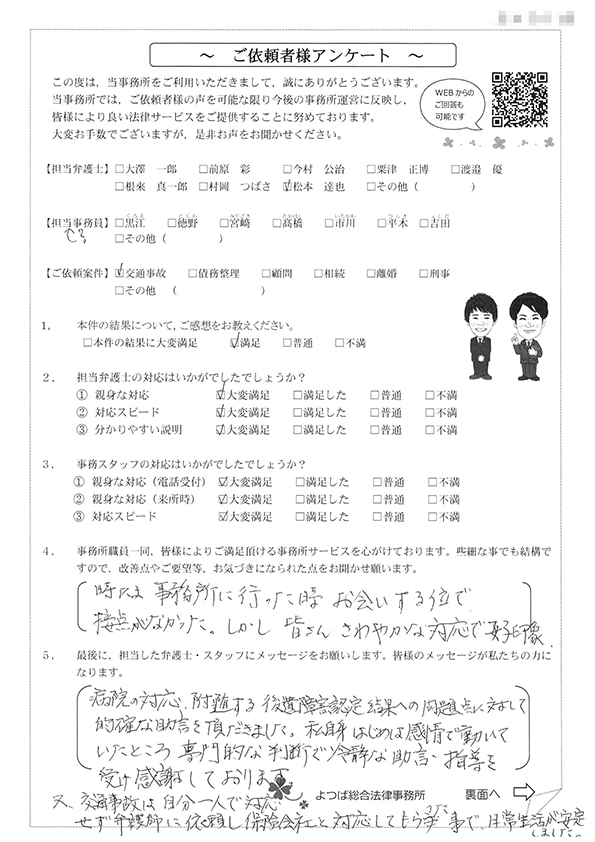 ～　ご依頼者様アンケート　～
この度は，当事務所をご利用いただきまして，誠にありがとうございます。
当事務所では，ご依頼者様の声を可能な限り今後の事務所運営に反映し，
皆様により良い法律サービスをご提供することに努めております。
大変お手数でございますが，是非お声をお聞かせください。
WEBからの
ご回答も
可能です
【担当弁護士】 □大澤　一郎 □前原　彩 □今村　公治 □粟津　正博 □渡邉　優
□根來　真一郎 □村岡　つばさ ☑松本　達也 □その他（　　　　）
【担当事務員】 □黒江 □徳野 □宮崎 □髙橋 □市川 □平木 □吉田
□その他（　　　　）
【ご依頼案件】 ☑交通事故 □債務整理 □顧問 □相続 □離婚 □刑事
□その他　（　　　　　　　）
1．　本件の結果について，ご感想をお教えください。
□本件の結果に大変満足 ☑満足 □普通 □不満
2．　担当弁護士の対応はいかがでしたでしょうか？
① 親身な対応 ☑大変満足 □満足した □普通 □不満
② 対応スピード ☑大変満足 □満足した □普通 □不満
③ 分かりやすい説明 ☑大変満足 □満足した □普通 □不満
3．　事務スタッフの対応はいかがでしたでしょうか？
① 親身な対応（電話受付） ☑大変満足 □満足した □普通 □不満
② 親身な対応（来所時） ☑大変満足 □満足した □普通 □不満
③ 対応スピード ☑大変満足 □満足した □普通 □不満
4．　事務所職員一同，皆様によりご満足頂ける事務所サービスを心がけております。些細な事でも結構で
すので，改善点やご要望等，お気づきになられた点をお聞かせ願います。
時たま 事務所に行った時 お会いする位で
接点がなかった。しかし 皆さん さわやかな対応で好印象
5．　最後に，担当した弁護士・スタッフにメッセージをお願いします。皆様のメッセージが私たちの力に
なります。
病院の対応、附随する後遺障害認定結果への問題点に対して
的確な助言を頂だきました。私自身はじめは感情で動いて
いたところ 専門的な判断で冷静な助言、指導を
受け感謝しております
よつば総合法律事務所
裏面へ
又、交通事故は自分一人で対応
せず弁護師に依頼し保険会社と対応してもらう事で、日常生活が安定
しました。